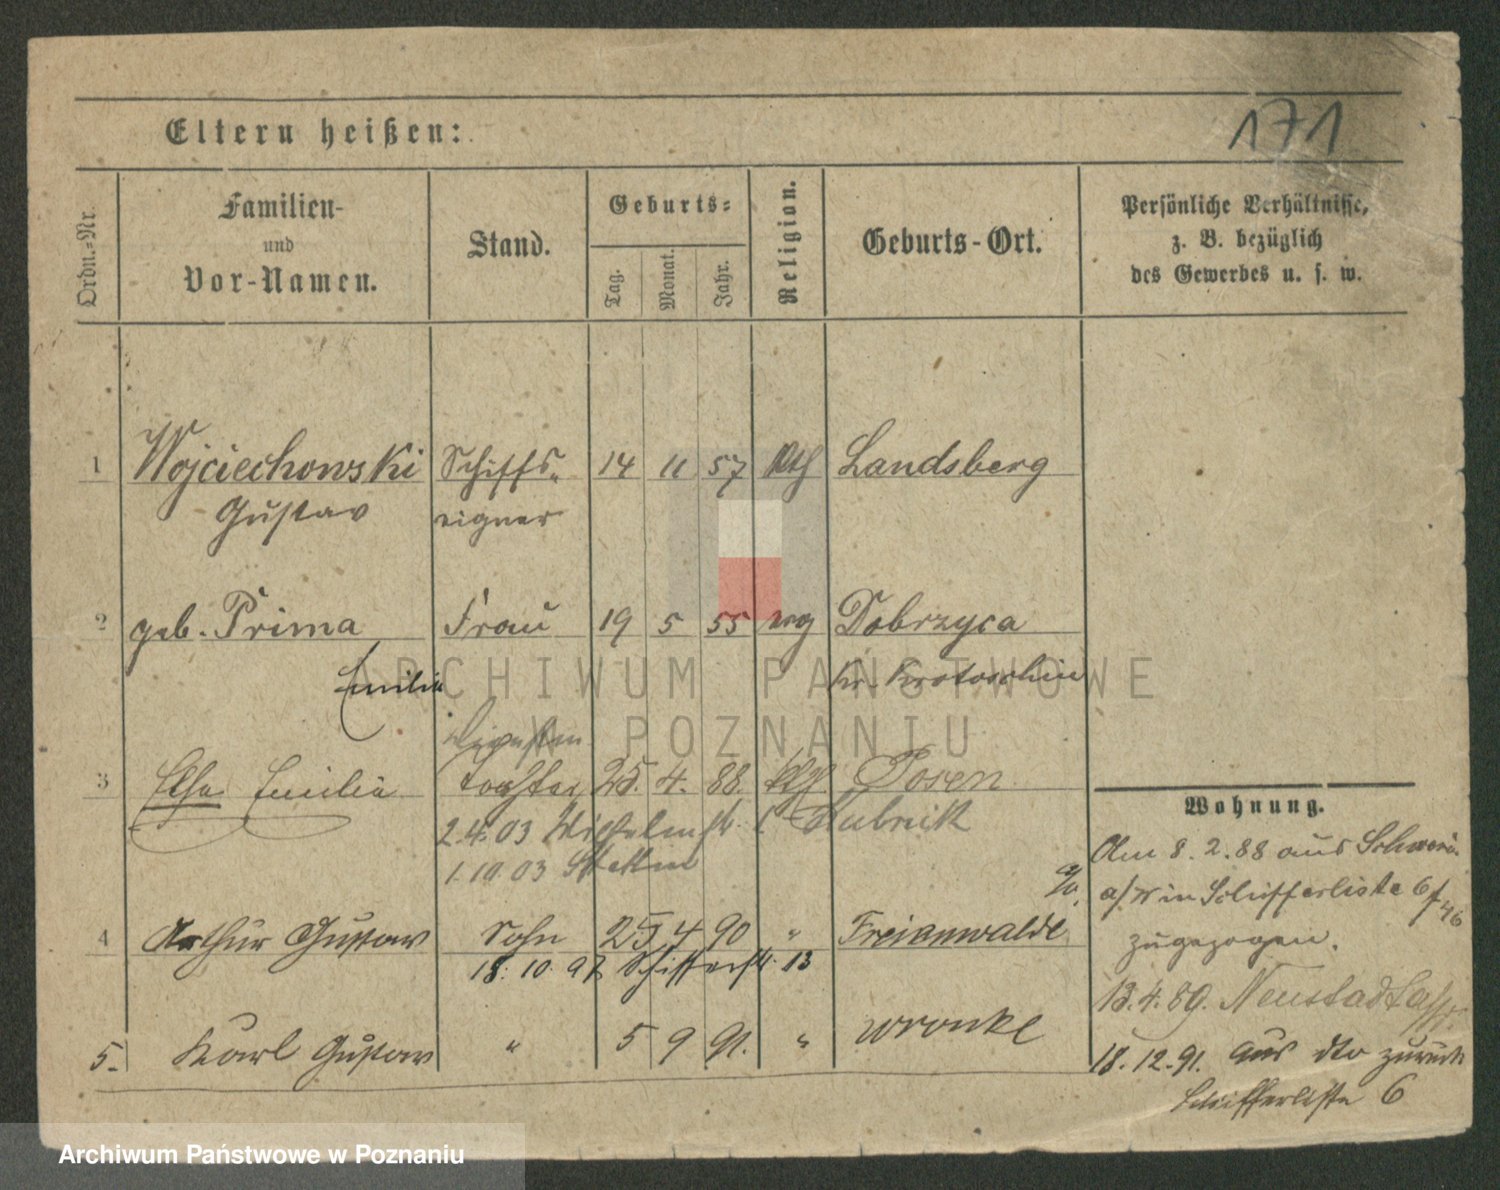 171
Eltern heißen:
Ordn.-Nr.
Familien-
und
Vor-Namen.
Stand.
Geburts-
Tag.
Monat.
Jahr.
Religion.
Geburts-Ort.
Persönliche Verhältnisse,
z. B. bezüglich
des Gewerbes u. s. w.
1 Wojciechowski Schiffs- 14 11 57 kth Landsberg
Gustav eigner
2 geb. Prima Frau 19 5 55 evg Dobrzyca
Emilie Kr. Krotoschin
3 Elsa Emilie Tochter 25. 4. 88. Posen
2.4.03 Wilhelmstr.
1.10.03 Stettin
4 Arthur Gustav Sohn 25 4 90 " Freienwalde a/o.
18. 10. 97 Schifferstr. 13
5. Karl Gustav " 5 9 91. " Wronke
Wohnung.
Am 8. 2. 88 aus Schwerin
a/W in Schifferliste 6 f 46
zugezogen.
13. 4. 89. Neustadt
18. 12. 91. aus dto zurück
Schifferliste 6
ARCHIWUM PAŃSTWOWE
W POZNANIU
Archiwum Państwowe w Poznaniu